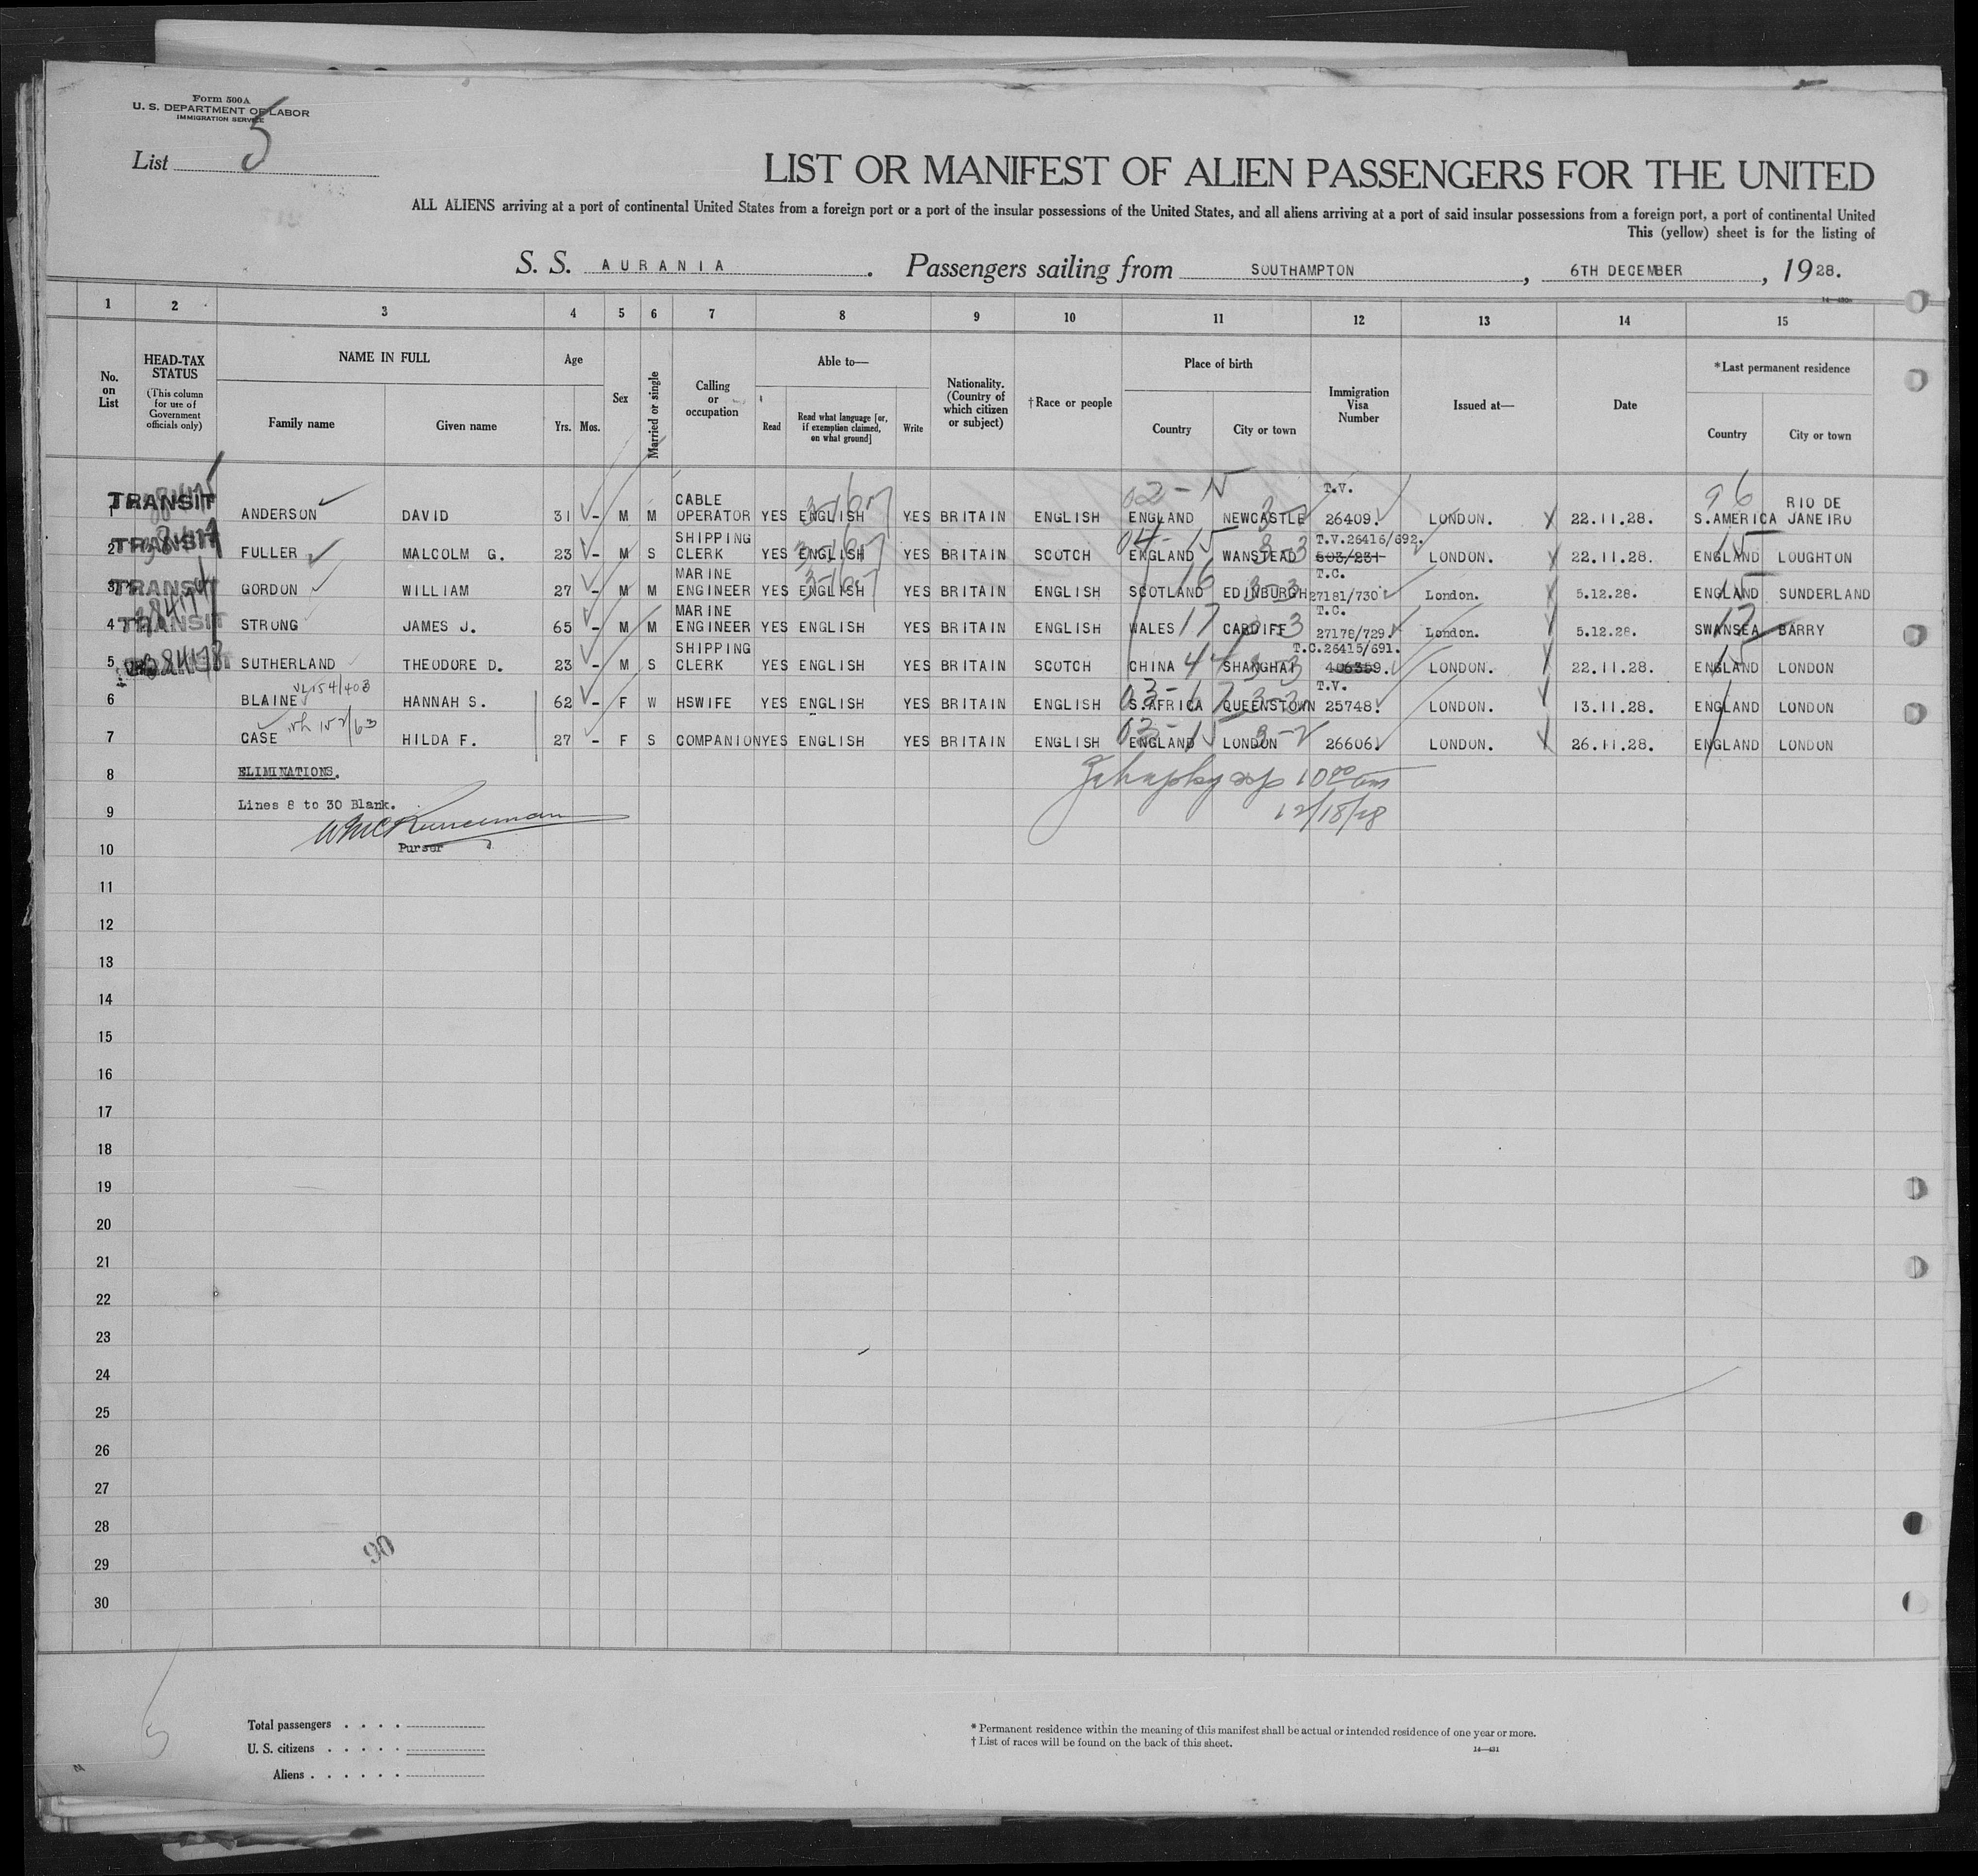 Form 500A
U. S. DEPARTMENT OF LABOR
IMMIGRATION SERVICE
List 5
LIST OR MANIFEST OF ALIEN PASSENGERS FOR THE UNITED
ALL ALIENS arriving at a port of continental United States from a foreign port or a port of the insular possessions of the United States, and all aliens arriving at a port of said insular possessions from a foreign port, a port of continental United
This (yellow) sheet is for the listing of
S. S. AURANIA. Passengers sailing from SOUTHAMPTON, 6TH DECEMBER, 1928.
14—430a
1 2 3 4 5 6 7 8 9 10 11 12 13 14 15
No. on List
HEAD-TAX STATUS
(This column for use of Government officials only)
NAME IN FULL
Family name Given name
Age
Yrs. Mos.
Sex
Married or single
Calling or occupation
Able to—
Read
Read what language [or, if exemption claimed, on what ground]
Write
Nationality. (Country of which citizen or subject)
†Race or people
Place of birth
Country City or town
Immigration Visa Number
Issued at—
Date
*Last permanent residence
Country City or town
02-15 T.V. 96
1 TRANSIT ANDERSON DAVID 31 - M M CABLE OPERATOR YES ENGLISH YES BRITAIN ENGLISH ENGLAND NEWCASTLE 26409. LONDON. 22.11.28. S.AMERICA RIO DE JANEIRO
2 TRANSIT FULLER MALCOLM G. 23 - M S SHIPPING CLERK YES ENGLISH YES BRITAIN SCOTCH ENGLAND WANSTEAD T.V.26416/692. 503/231 LONDON. 22.11.28. ENGLAND LOUGHTON
3 TRANSIT GORDON WILLIAM 27 - M M MARINE ENGINEER YES ENGLISH YES BRITAIN ENGLISH SCOTLAND EDINBURGH T.C. 27181/730 London. 5.12.28. ENGLAND SUNDERLAND
4 TRANSIT STRONG JAMES J. 65 - M M MARINE ENGINEER YES ENGLISH YES BRITAIN ENGLISH WALES 17 CARDIFF 3 T.C. 27178/729. London. 5.12.28. SWANSEA BARRY
5 SUTHERLAND THEODORE D. 23 - M S SHIPPING CLERK YES ENGLISH YES BRITAIN SCOTCH CHINA 44 SHANGHAI T.C.26415/691. 406359. LONDON. 22.11.28. ENGLAND LONDON
6 BLAINE HANNAH S. 62 - F W HSWIFE YES ENGLISH YES BRITAIN ENGLISH S.AFRICA QUEENSTOWN T.V. 25748. LONDON. 13.11.28. ENGLAND LONDON
7 CASE HILDA F. 27 - F S COMPANION YES ENGLISH YES BRITAIN ENGLISH ENGLAND LONDON 26606. LONDON. 26.11.28. ENGLAND LONDON
8 ELIMINATIONS.
Lines 8 to 30 Blank.
12/18/28
9
Purser
10
11
12
13
14
15
16
17
18
19
20
21
22
23
24
25
26
27
28
90
29
30
Total passengers
U. S. citizens
Aliens
* Permanent residence within the meaning of this manifest shall be actual or intended residence of one year or more.
† List of races will be found on the back of this sheet.
14—431